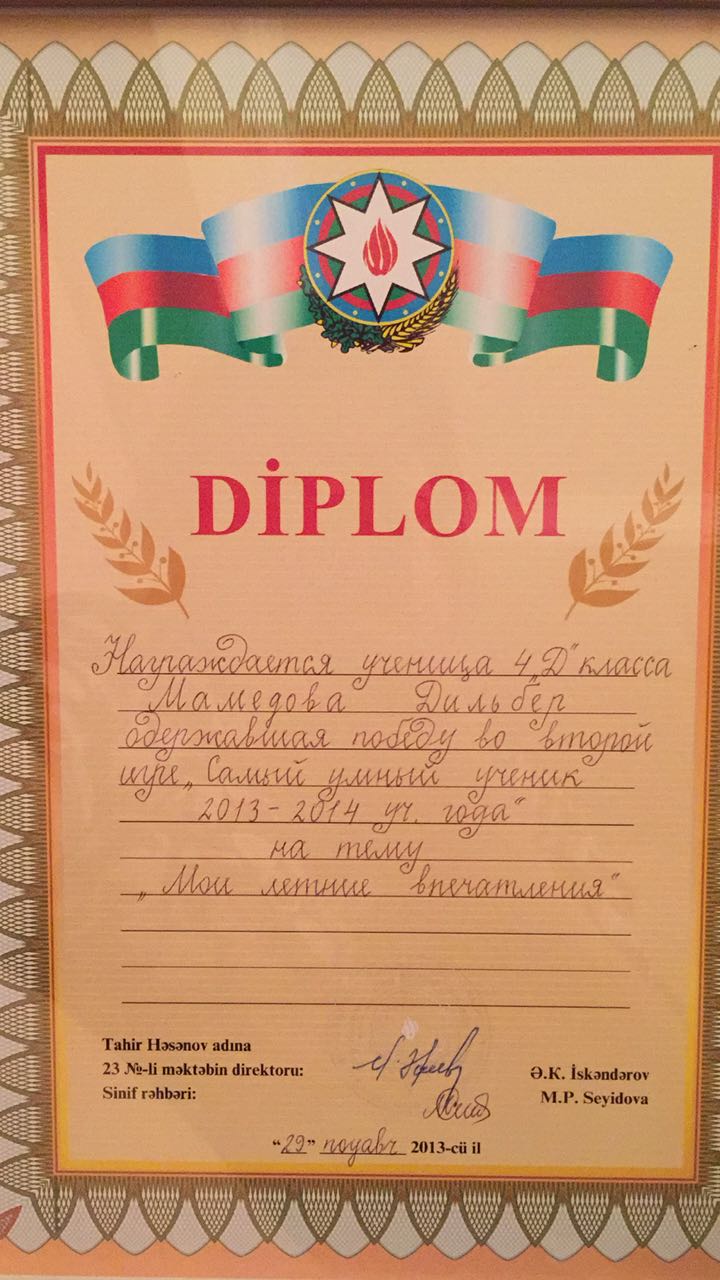 DİPLOM
Награждается ученица 4 „Д“ класса
Мамедова Дильбер
одержавшая победу во второй
игре „Самый умный ученик
2013-2014 уч. года“
на тему
„Мои летние впечатления“
Tahir Həsənov adına
23 №-li məktəbin direktoru: Ə.K. İskəndərov
Sinif rəhbəri: M.P. Seyidova
“29” noyabr 2013-cü il